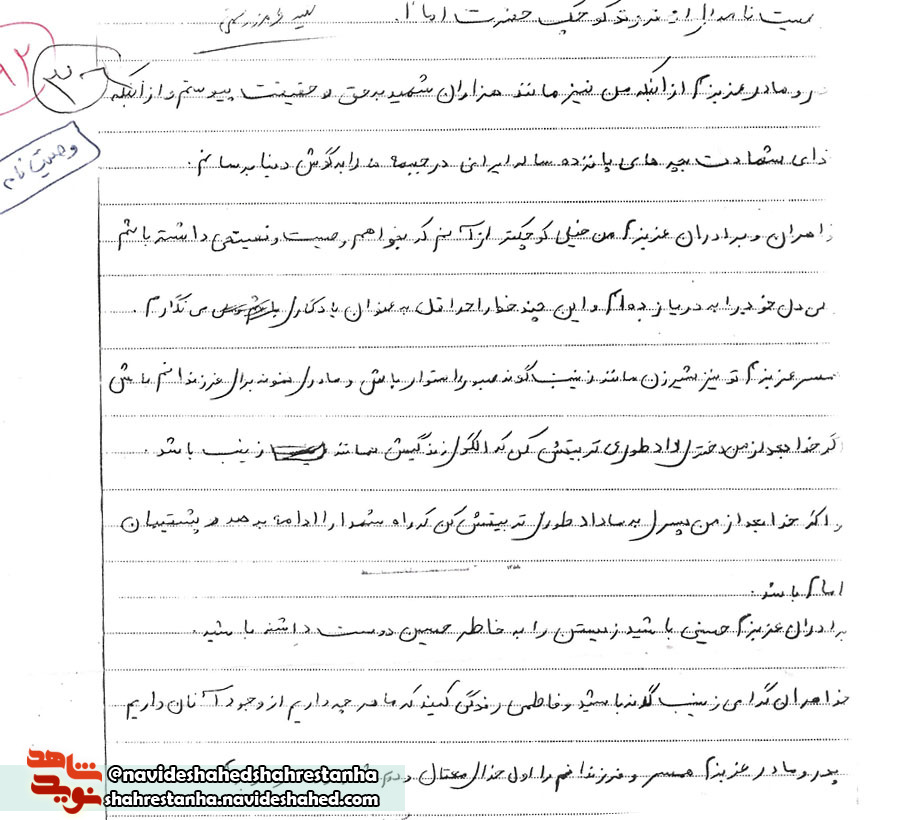 وصیت نامه‌ای از فرزند کوچک حضرت امام
۳۰
۹۲
وصیت نامه
پدر و مادر عزیزم از آنکه من نیز مانند هزاران شهید به حق و حقیقت پیوستم و از آنکه
ندای شهادت بچه های پانزده ساله ایرانی در جبهه ها را به گوش دنیا برسانم.
خواهران و برادران عزیزم من خیلی کوچکتر از آنم که بخواهم وصیت و نصیحتی داشته باشم
ولی دل خود را به دریا زده‌ام و این چند خط را حداقل به عنوان یادگاری می نگارم.
همسر عزیزم تو نیز شیرزن مانند زینب گونه صبور و استوار باش و مادری نمونه برای فرزندانم باش
اگر خدا بعد از من دختری داد طوری تربیتش کن که الگوی زندگیش همانند زینب باشد.
و اگر خدا بعد از من پسری به ما داد طوری تربیتش کن که راه شهدا را ادامه بدهد و پشتیبان
امام باشد.
برادران عزیزم حسینی باشید زیستن را به خاطر حسین دوست داشته باشید.
خواهران گرامی زینب گونه باشید و فاطمی زندگی کنید که ما هر چه داریم از وجود آنان داریم
پدر و مادر عزیزم همسر و فرزندانم را اول خدای متعال و دوم
شاهد
نوید
@navideshahedshahrestanha
shahrestanha.navideshahed.com